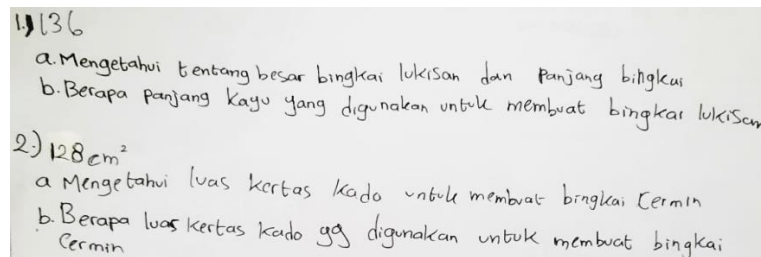 1.) 136
a. Mengetahui tentang besar bingkai lukisan dan panjang bingkai
b. Berapa panjang kayu yang digunakan untuk membuat bingkai lukisan
2.) 128 cm²
a Mengetahui luas kertas kado untuk membuat bingkai Cermin
b. Berapa luas kertas kado yg digunakan untuk membuat bingkai
Cermin